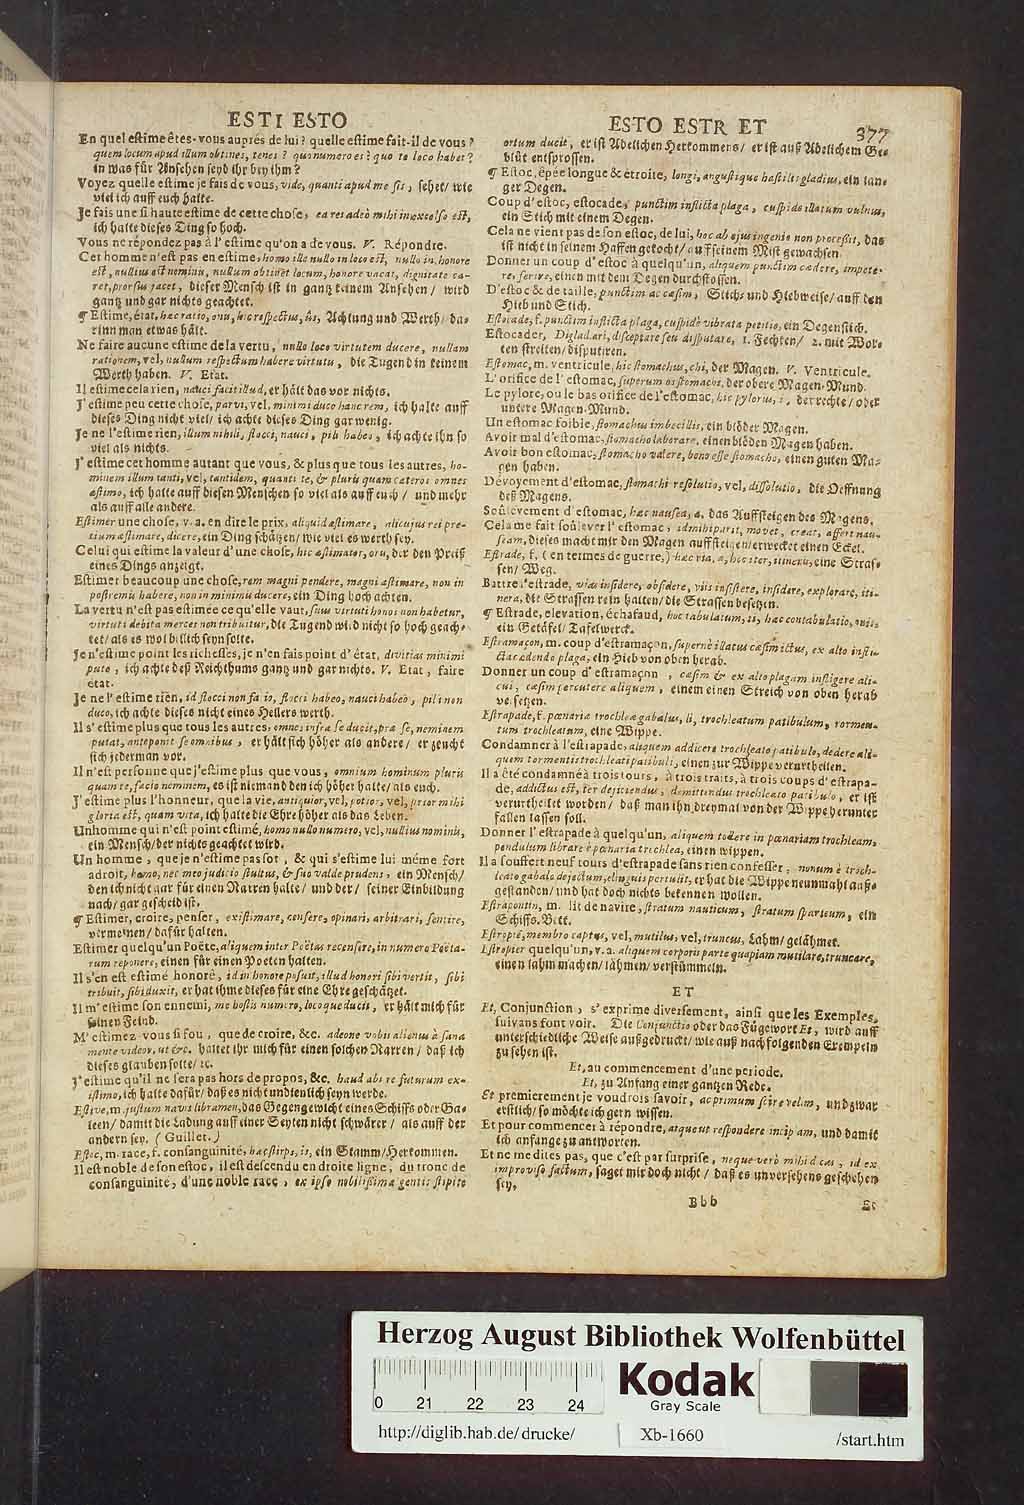 ESTI ESTO
En quel estime êtes-vous auprés de lui? quelle estime fait-il de vous?
quem locum apud illum obtines, tenes? quo numero es? quo te loco habet?
in was für Ansehen seyd ihr bey ihm?
Voyez quelle estime je fais de vous, vide, quanti apud me sis, sehet/ wie
viel ich auff euch halte.
Je fais une si haute estime de cette chose, ea res adeò mihi in excelso est,
ich halte dieses Ding so hoch.
Vous ne répondez pas à l'estime qu'on a de vous. V. Répondre.
Cet homme n'est pas en estime, homo ille nullo in loco est, nullo in honore
est, nullius est nominis, nullum obtinet locum, honore vacat, dignitate ca-
ret, prorsus jacet, dieser Mensch ist in gantz keinem Ansehen/ wird
gantz und gar nichts geachtet.
¶ Estime, état, hæc ratio, onis, hic respectus, ûs, Achtung und Werth/ dar
rinn man etwas hält.
Ne faire aucune estime de la vertu, nullo loco virtutem ducere, nullam
rationem, vel, nullum respectum habere virtutis, die Tugend in keinem
Werth haben. V. Etat.
Il estime cela rien, nauci facit illud, er hält das vor nichts.
J'estime peu cette chose, parvi, vel, minimi duco hanc rem, ich halte auff
dieses Ding nicht viel/ ich achte dieses Ding gar wenig.
Je ne l'estime rien, illum nihili, flocci, nauci, pili habeo, ich achte ihn so
viel als nichts.
J'estime cet homme autant que vous, & plus que tous les autres, ho-
minem illum tanti, vel, tantidem, quanti te, & pluris quam cæteros omnes
æstimo, ich halte auff diesen Menschen so viel als auff euch/ und mehr
als auff alle andere.
Estimer une chose, v. a. en dire le prix, aliquid æstimare, alicujus rei pre-
tium æstimare, dicere, ein Ding schätzen/ wie viel es werth sey.
Celui qui estime la valeur d'une chose, hic æstimator, oris, der den Preiß
eines Dings anzeigt.
Estimer beaucoup une chose, rem magni pendere, magni æstimare, non in
postremis habere, non in minimis ducere, ein Ding hoch achten.
La vertu n'est pas estimée ce qu'elle vaut, suus virtuti honos non habetur,
virtuti debita merces non tribuitur, die Tugend wird nicht so hoch geach-
tet/ als es wol billich seyn solte.
Je n'estime point les richesses, je n'en fais point d'état, divitias minimi
puto, ich achte deß Reichthums gantz und gar nichts. V. Etat, faire
état.
Je ne l'estime rien, id flocci non facio, flocci habeo, nauci habeo, pili non
duco, ich achte dieses nicht eines Hellers werth.
Il s'estime plus que tous les autres, omnes infra se ducit, præ se, neminem
putat, anteponit se omnibus, er hält sich höher als andere/ er zeucht
sich jederman vor.
Il n'est personne que j'estime plus que vous, omnium hominum pluris
quam te, facio neminem, es ist niemand den ich höher halte/ als euch.
J'estime plus l'honneur, que la vie, antiquior, vel, potior, vel, prior mihi
gloria est, quam vita, ich halte die Ehre höher als das Leben.
Un homme qui n'est point estimé, homo nullo numero, vel, nullius nominis,
ein Mensch/ der nichts geachtet wird.
Un homme, que je n'estime pas sot, & qui s'estime lui même fort
adroit, homo, nec meo judicio stultus, & suo valde prudens, ein Mensch/
den ich nicht gar für einen Narren halte/ und der/ seiner Einbildung
nach/ gar gescheid ist.
¶ Estimer, croire, penser, existimare, censere, opinari, arbitrari, sentire,
vermeinen/ dafür halten.
Estimer quelqu'un Poëte, aliquem inter Poëtas recensere, in numero Poëta-
rum reponere, einen für einen Poeten halten.
Il s'en est estimé honoré, id in honore posuit, illud honori sibi vertit, sibi
tribuit, sibi duxit, er hat ihme dieses für eine Ehre geschätzet.
Il m'estime son ennemi, me hostis numero, loco que ducit, er hält mich für
seinen Feind.
M'estimez vous si fou, que de croire, &c. adeone vobis alienus à sana
mente videor, ut &c. haltet ihr mich für einen solchen Narren/ daß ich
dieses glauben solte/ ec.
J'estime qu'il ne sera pas hors de propos, &c. haud abs re futurum ex-
istimo, ich halte dafür/ daß es nicht undienlich seyn werde.
Estive, m. justum navis libramen, das Gegengewicht eines Schiffs oder Ga-
leen/ damit die Ladung auff einer Seyten nicht schwärer/ als auff der
andern sey. (Guillet.)
Estoc, m. race, f. consanguinité, hæc stirps, is, ein Stamm/ Herkommen.
Il est noble de son estoc, il est descendu en droite ligne, du tronc de
consanguinité, d'une noble race, ex ipso nobilissimæ gentis stipite
ESTO ESTR ET 377
ortum ducit, er ist Adelichen Herkommens/ er ist auß Adelichem Ge-
blüt entsprossen.
¶ Estoc, épée longue & étroite, longi, angustique hastilis gladius, ein lan-
ger Degen.
Coup d'estoc, estocade, punctim inflicta plaga, cuspide illatum vulnus,
ein Stich mit einem Degen.
Cela ne vient pas de son estoc, de lui, hoc ab ejus ingenio non processit, das
ist nicht in seinem Haffen gekocht/ auf seinem Mist gewachsen.
Donner un coup d'estoc à quelqu'un, aliquem punctim cædere, impete-
re, ferire, einen mit dem Degen durchstossen.
D'estoc & de taille, punctim ac cæsim, Stichs und Hiebweise/ auff den
Hieb und Stich.
Estocade, f. punctim inflicta plaga, cuspide vibrata petitio, ein Degenstich.
Estocader, Digladiari, disceptare seu disputare, 1. Fechten/ 2. mit Wor-
ten streiten/ disputiren.
Estomac, m. ventricule, hic stomachus, chi, der Magen. V. Ventricule.
L'orifice de l'estomac, superum os stomachi, der obere Magen-Mund.
Le pylore, ou le bas orifice de l'estomac, hic pylorus, i, der rechte/ oder
untere Magen-Mund.
Un estomac foible, stomachus imbecillis, ein blöder Magen.
Avoir mal d'estomac, stomacho laborare, einen blöden Magen haben.
Avoir bon estomac, stomacho valere, bono esse stomacho, einen guten Ma-
gen haben.
Dévoyement d'estomac, stomachi resolutio, vel, dissolutio, die Oeffnung
deß Magens.
Soûlevement d'estomac, hæc nausea, æ, das Auffsteigen des Magens.
Cela me fait soûlever l'estomac, id mihi parit, movet, creat, affert nau-
seam, dieses macht mir den Magen auffsteigen/ erwecket einen Eckel.
Estrade, f. (en termes de guerre,) hæc via, æ, hoc iter, itineris, eine Stras-
sen/ Weg.
Battre l'estrade, vias insidere, obsidere, viis insistere, insidere, explorare, iti-
nera, die Strassen rein halten/ die Strassen besetzen.
¶ Estrade, elevation, échafaud, hoc tabulatum, ti, hæc contabulatio, onis,
ein Getäfel/ Tafelwerck.
Estramaçon, m. coup d'estramaçon, supernè illatus cæsim ictus, ex alto infli-
cta cædendo plaga, ein Hieb von oben herab.
Donner un coup d'estramaçon, cæsim & ex alto plagam infligere ali-
cui, cæsim percutere aliquem, einem einen Streich von oben herab
versetzen.
Estrapade, f. pœnaria trochleæ gabalus, li, trochleatum patibulum, tormen-
tum trochleatum, eine Wippe.
Condamner à l'estrapade, aliquem addicere trochleato patibulo, dedere ali-
quem tormentis trochleati patibuli, einen zur Wippe verurtheilen.
Il a été condamné à trois tours, à trois traits, à trois coups d'estrapa-
de, addictus est, ter dejiciendus, demittendus trochleato patibulo, er ist
verurtheilet worden/ daß man ihn dreymal von der Wippe herunter
fallen lassen soll.
Donner l'estrapade à quelqu'un, aliquem tollere in pœnariam trochleam,
pendulum librare è pœnaria trochlea, einen wippen.
Il a souffert neuf tours d'estrapade sans rien confesser, nonum è troch-
leato gabalo dejectum, elinguis pertulit, er hat die Wippe neunmahl auß-
gestanden/ und hat doch nichts bekennen wollen.
Estrapontin, m. lit de navire, stratum nauticum, stratum sparteum, ein
Schiffs-Bett.
Estropié, membro captus, vel, mutilus, vel, truncus, Lahm/ gelähmet.
Estropier quelqu'un, v. a. aliquem corporis parte quapiam mutilare, truncare,
einen lahm machen/ lähmen/ verstümmeln.
ET
Et, Conjunction, s'exprime diversement, ainsi que les Exemples,
suivans font voir. Die Conjunctio oder das Fügewort Et, wird auff
unterschiedliche Weise außgedruckt/ wie auß nachfolgenden Exempeln
zu sehen ist.
Et, au commencement d'une periode.
Et, zu Anfang einer gantzen Rede.
Et premierement je voudrois savoir, ac primum scire velim, und zwar
erstlich/ so möchte ich gern wissen.
Et pour commencer à répondre, atque ut respondere incipiam, und damit
ich anfange zu antworten.
Et ne me dites pas, que c'est par surprise, neque verò mihi dicas, id ex
improviso factum, saget mir doch nicht/ daß es unversehens geschehen
sey.
Bbb
Et
Herzog August Bibliothek Wolfenbüttel
Kodak
Gray Scale
0 21 22 23 24
http://diglib.hab.de/drucke/ Xb-1660 /start.htm